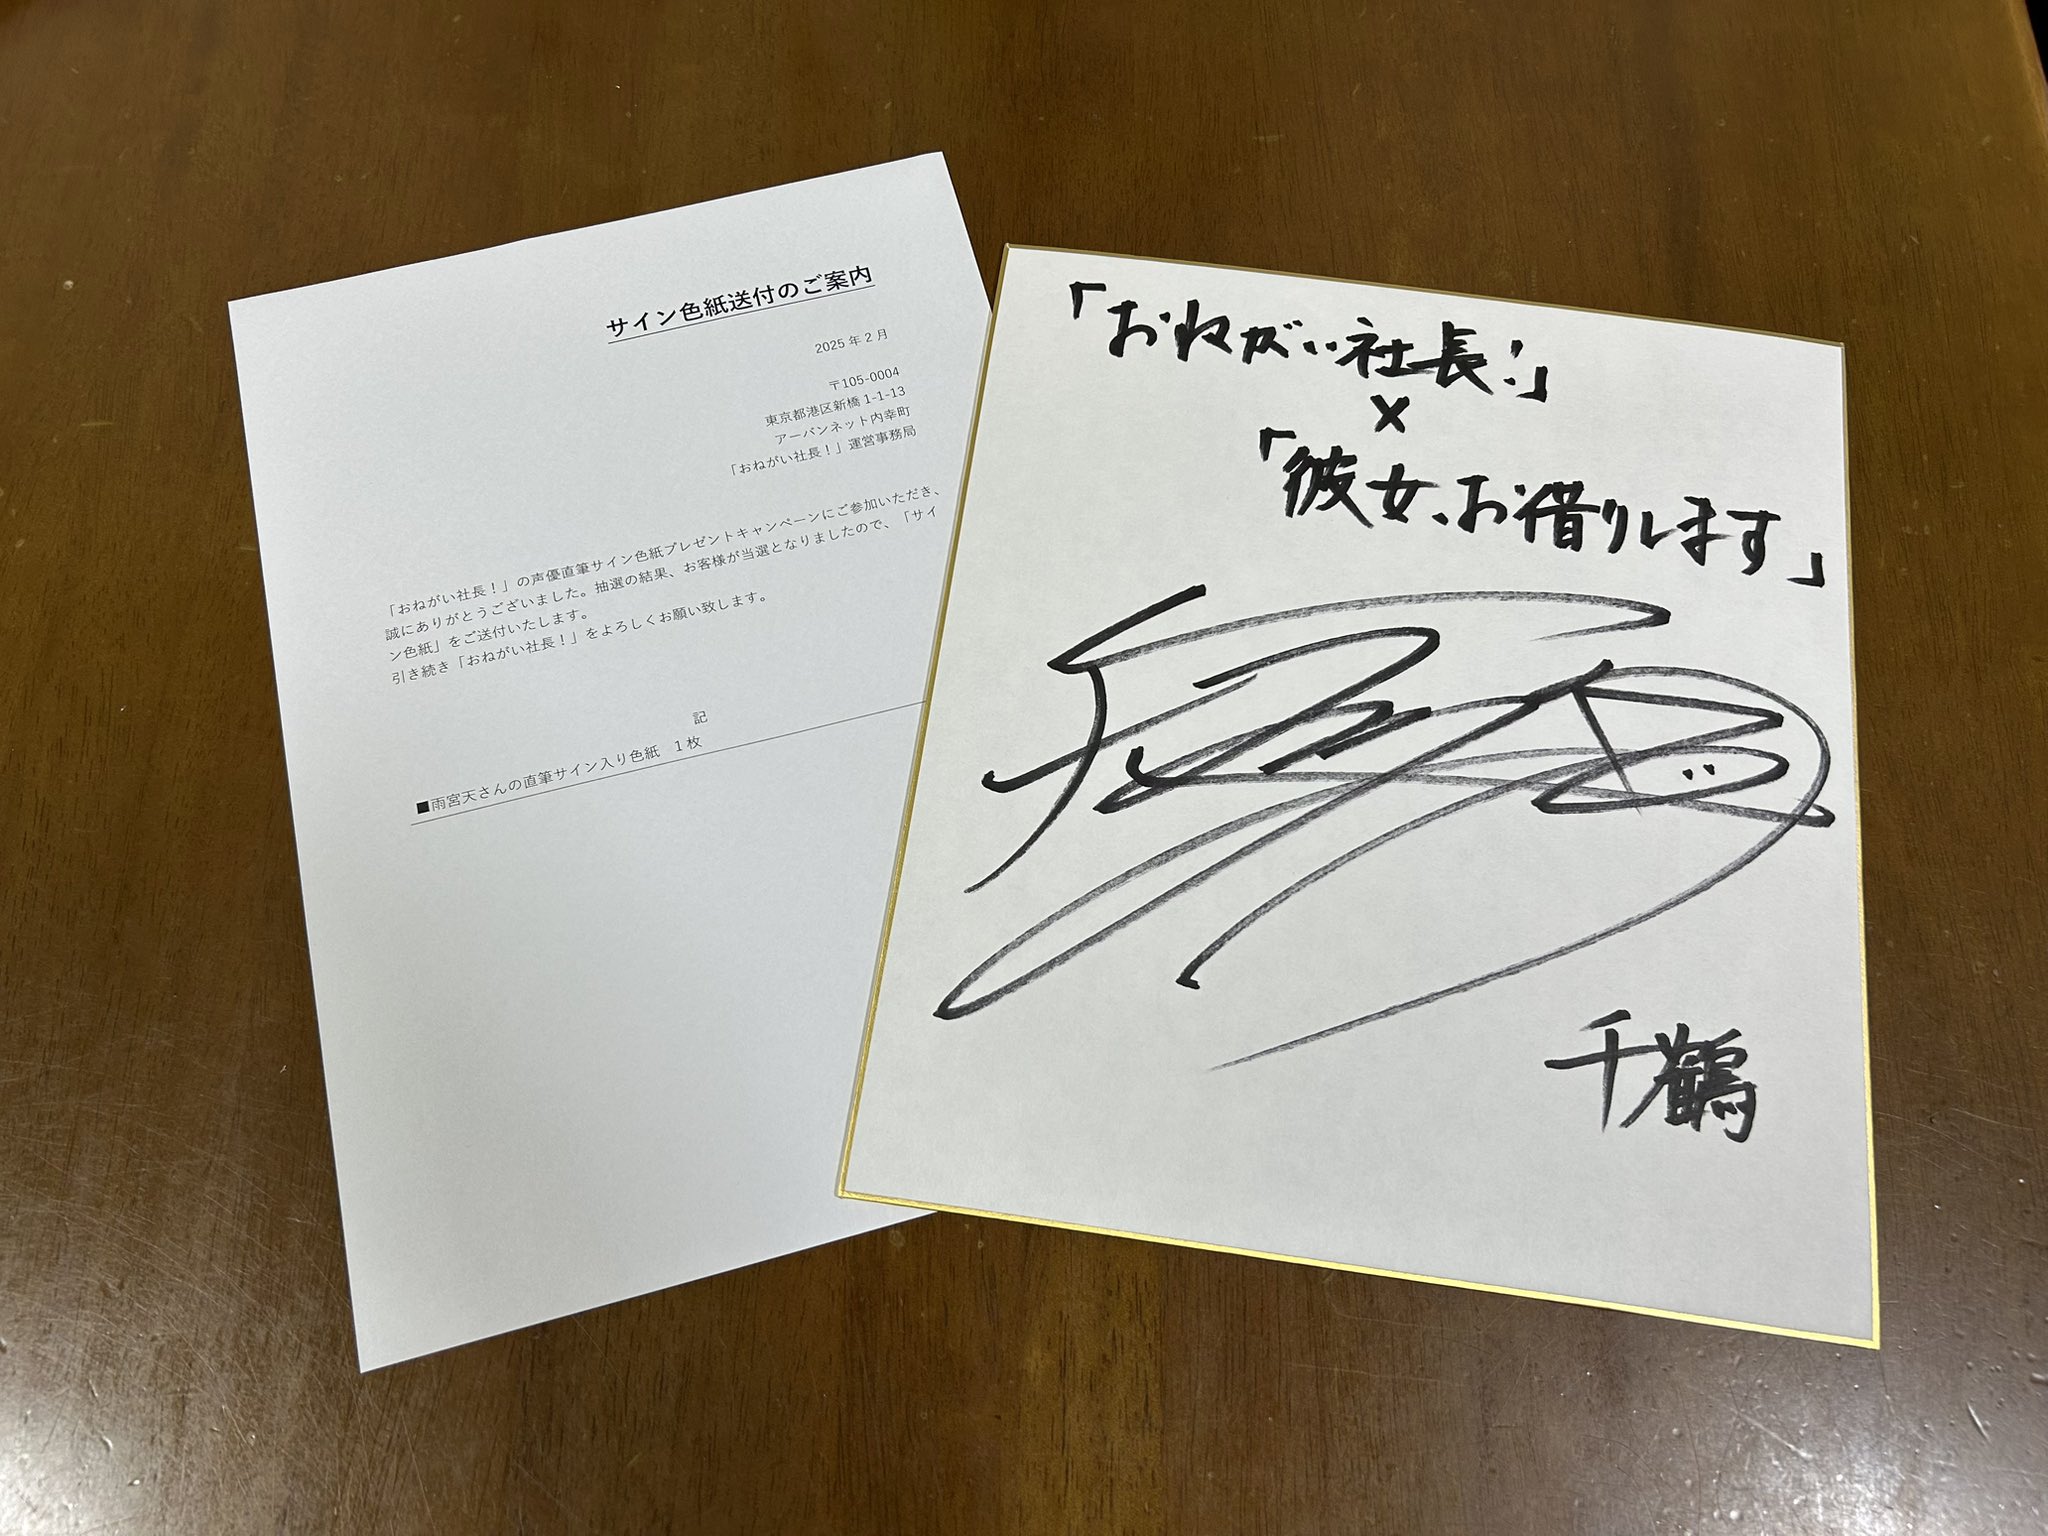 サイン色紙送付のご案内
2025年2月
〒105-0004
東京都港区新橋1-1-13
アーバンネット内幸町
「おねがい社長！」運営事務局
「おねがい社長！」の声優直筆サイン色紙プレゼントキャンペーンにご参加いただき、
誠にありがとうございました。抽選の結果、お客様が当選となりましたので、「サイ
ン色紙」をご送付いたします。
引き続き「おねがい社長！」をよろしくお願い致します。
記
■雨宮天さんの直筆サイン入り色紙　1枚
「おねがい社長！」
×
「彼女、お借りします」
千鶴